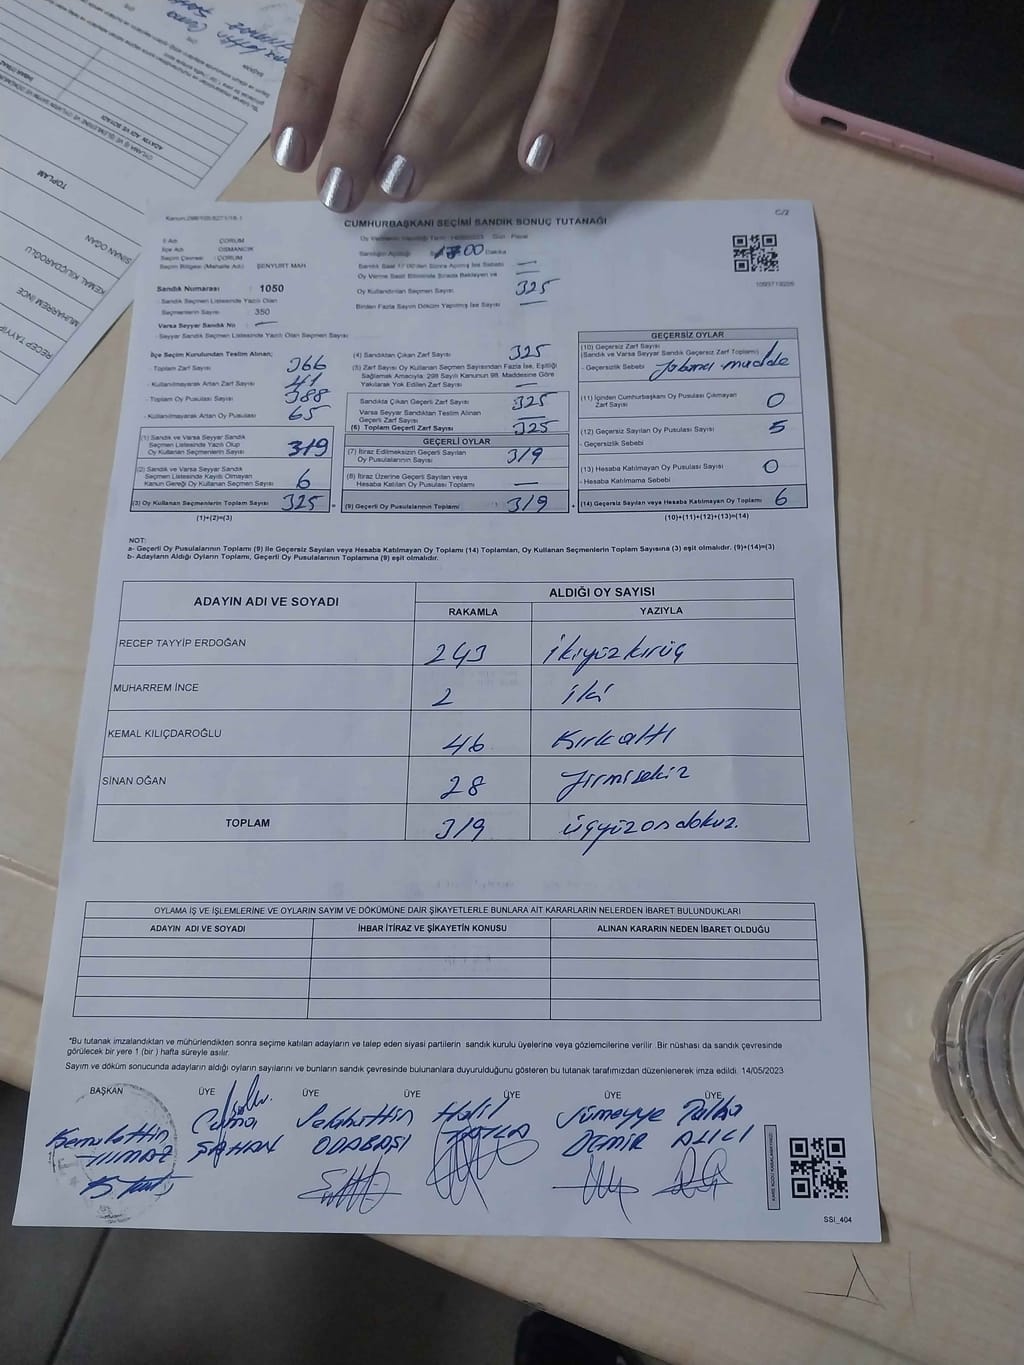 Kanun:298/105,6271/16.1
C/2
CUMHURBAŞKANI SEÇİMİ SANDIK SONUÇ TUTANAĞI
İl Adı : ÇORUM
İlçe Adı : OSMANCIK
Seçim Çevresi : ÇORUM
Seçim Bölgesi (Mahalle Adı) : ŞENYURT MAH
Sandık Numarası : 1050
Sandık Seçmen Listesinde Yazılı Olan
Seçmenlerin Sayısı : 350
Varsa Seyyar Sandık No : —
Seyyar Sandık Seçmen Listesinde Yazılı Olan Seçmen Sayısı
Gün : Pazar
00 Dakika
Sandık Saat 17:00'den Sonra Açılmış İse Sebebi —
Oy Verme Saati Bitiminde Sırada Bekleyen ve
Oy Kullandırılan Seçmen Sayısı 325
Birden Fazla Sayım Döküm Yapılmış İse Sayısı —
İlçe Seçim Kurulundan Teslim Alınan;
- Toplam Zarf Sayısı 366
- Kullanılmayarak Artan Zarf Sayısı 41
- Toplam Oy Pusulası Sayısı 388
- Kullanılmayarak Artan Oy Pusulası 65
(1) Sandık ve Varsa Seyyar Sandık
Seçmen Listesinde Yazılı Olup
Oy Kullanan Seçmenlerin Sayısı 319
(2) Sandık ve Varsa Seyyar Sandık
Seçmen Listesinde Kayıtlı Olmayan
Kanun Gereği Oy Kullanan Seçmen Sayısı 6
(3) Oy Kullanan Seçmenlerin Toplam Sayısı 325
(1)+(2)=(3)
(4) Sandıktan Çıkan Zarf Sayısı 325
(5) Zarf Sayısı Oy Kullanan Seçmen Sayısından Fazla İse, Eşitliği
Sağlamak Amacıyla; 298 Sayılı Kanunun 98. Maddesine Göre
Yakılarak Yok Edilen Zarf Sayısı —
Sandıkta Çıkan Geçerli Zarf Sayısı 325
Varsa Seyyar Sandıktan Teslim Alınan
Geçerli Zarf Sayısı —
(6) Toplam Geçerli Zarf Sayısı 325
GEÇERLİ OYLAR
(7) İtiraz Edilmeksizin Geçerli Sayılan
Oy Pusulalarının Sayısı 319
(8) İtiraz Üzerine Geçerli Sayılan veya
Hesaba Katılan Oy Pusulası Toplamı —
(9) Geçerli Oy Pusulalarının Toplamı 319
GEÇERSİZ OYLAR
(10) Geçersiz Zarf Sayısı
(Sandık ve Varsa Seyyar Sandık Geçersiz Zarf Toplamı) 1
- Geçersizlik Sebebi Yabancı madde
(11) İçinden Cumhurbaşkanı Oy Pusulası Çıkmayan
Zarf Sayısı 0
(12) Geçersiz Sayılan Oy Pusulası Sayısı 5
- Geçersizlik Sebebi
(13) Hesaba Katılmayan Oy Pusulası Sayısı 0
- Hesaba Katılmama Sebebi
(14) Geçersiz Sayılan veya Hesaba Katılmayan Oy Toplamı 6
(10)+(11)+(12)+(13)=(14)
NOT:
a- Geçerli Oy Pusulalarının Toplamı (9) ile Geçersiz Sayılan veya Hesaba Katılmayan Oy Toplamı (14) Toplamları, Oy Kullanan Seçmenlerin Toplam Sayısına (3) eşit olmalıdır. (9)+(14)=(3)
b- Adayların Aldığı Oyların Toplamı, Geçerli Oy Pusulalarının Toplamına (9) eşit olmalıdır.
ADAYIN ADI VE SOYADI ALDIĞI OY SAYISI
RAKAMLA YAZIYLA
RECEP TAYYİP ERDOĞAN 243 ikiyüzkırüç
MUHARREM İNCE 2 iki
KEMAL KILIÇDAROĞLU 46 Kırkaltı
SİNAN OĞAN 28 yirmisekiz
TOPLAM 319 üçyüzondokuz.
OYLAMA İŞ VE İŞLEMLERİNE VE OYLARIN SAYIM VE DÖKÜMÜNE DAİR ŞİKAYETLERLE BUNLARA AİT KARARLARIN NELERDEN İBARET BULUNDUKLARI
ADAYIN ADI VE SOYADI İHBAR İTİRAZ VE ŞİKAYETİN KONUSU ALINAN KARARIN NEDEN İBARET OLDUĞU
*Bu tutanak imzalandıktan ve mühürlendikten sonra seçime katılan adayların ve talep eden siyasi partilerin sandık kurulu üyelerine veya gözlemcilerine verilir .Bir nüshası da sandık çevresinde
görülecek bir yere 1 (bir ) hafta süreyle asılır.
Sayım ve döküm sonucunda adayların aldığı oyların sayılarını ve bunların sandık çevresinde bulunanlara duyurulduğunu gösteren bu tutanak tarafımızdan düzenlenerek imza edildi. 14/05/2023
BAŞKAN ÜYE ÜYE ÜYE ÜYE ÜYE ÜYE
Kemalettin Cuma Selahattin Halil Sümeyye Talha
YILMAZ ŞAHAN ODABAŞI DEMİR ALICI
SSI_404
SİNAN OĞAN
KEMAL KILIÇDAROĞLU
MUHARREM İNCE
RECEP TAYYİP
TOPLAM
ADAYIN ADI VE SOYADI